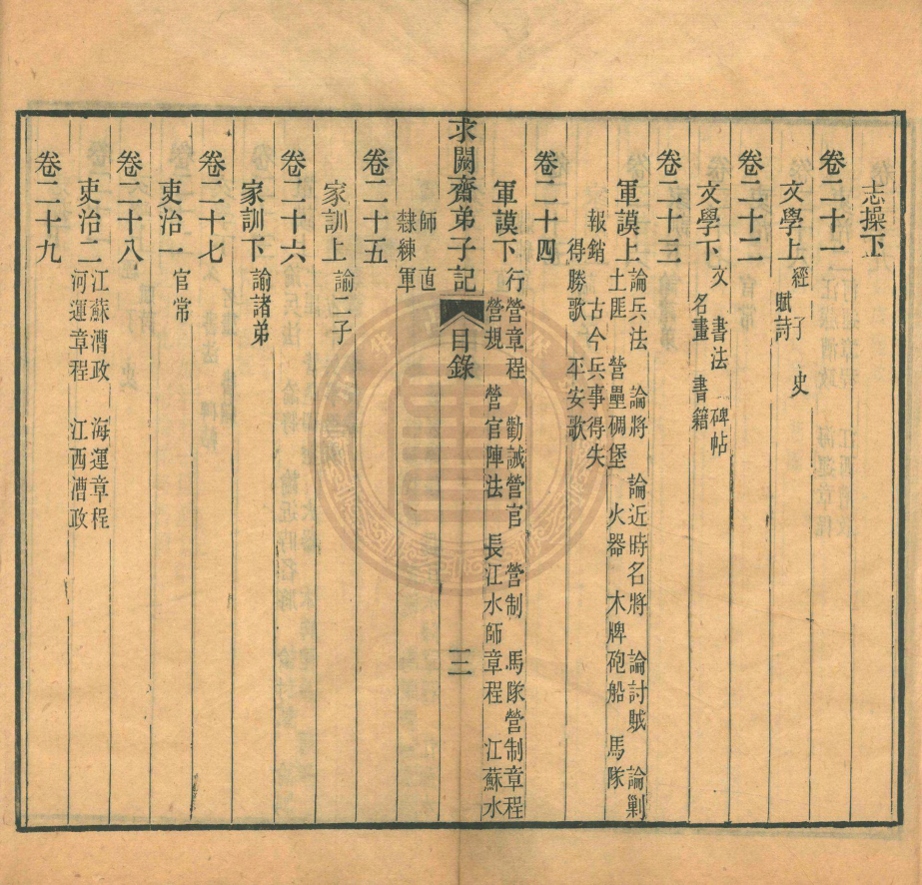 志操下
卷二十一
文學上 經 子 史
賦 詩
卷二十二
文學下 文 書法 碑帖
名畫 書籍
卷二十三
軍謨上 論兵法 論將 論近時名將 論討賊 論剿
土匪 營壘碉堡 火器 木牌砲船 馬隊
報銷 古今兵事得失
得勝歌 平安歌
卷二十四
軍謨下 行營章程 勸誡營官 營制 馬隊營制章程
營規 營官陣法 長江水師章程 江蘇水
求闕齋弟子記 目錄 三
師 直
隸練軍
卷二十五
家訓上 諭二子
卷二十六
家訓下 諭諸弟
卷二十七
吏治一 官常
卷二十八
吏治二 江蘇漕政 海運章程
河運章程 江西漕政
卷二十九